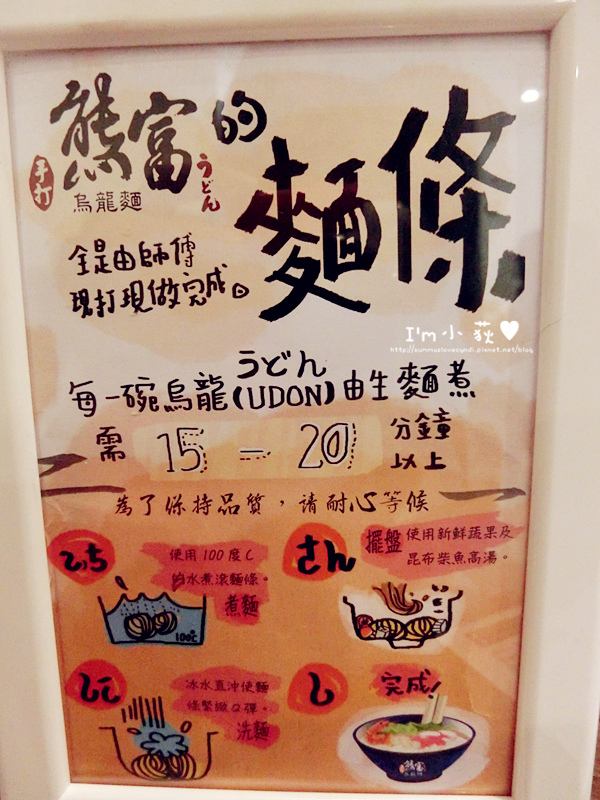 熊富的
手打
烏龍麵
うどん
麵條
全是由師傅
現打現做完成。
I'm 小荻♥
http://sunmuslovecyndi.pixnet.net/blog
うどん
每一碗烏龍(UDON)由生麵煮
需 15 — 20 分鐘
以上
為了保持品質，請耐心等候
いち
使用100度C
的水煮滾麵條。
煮麵
100℃
さん
擺盤
使用新鮮蔬果及
昆布柴魚高湯。
に
冰水直沖使麵
條緊緻Q彈。
洗麵
し
完成!
熊富